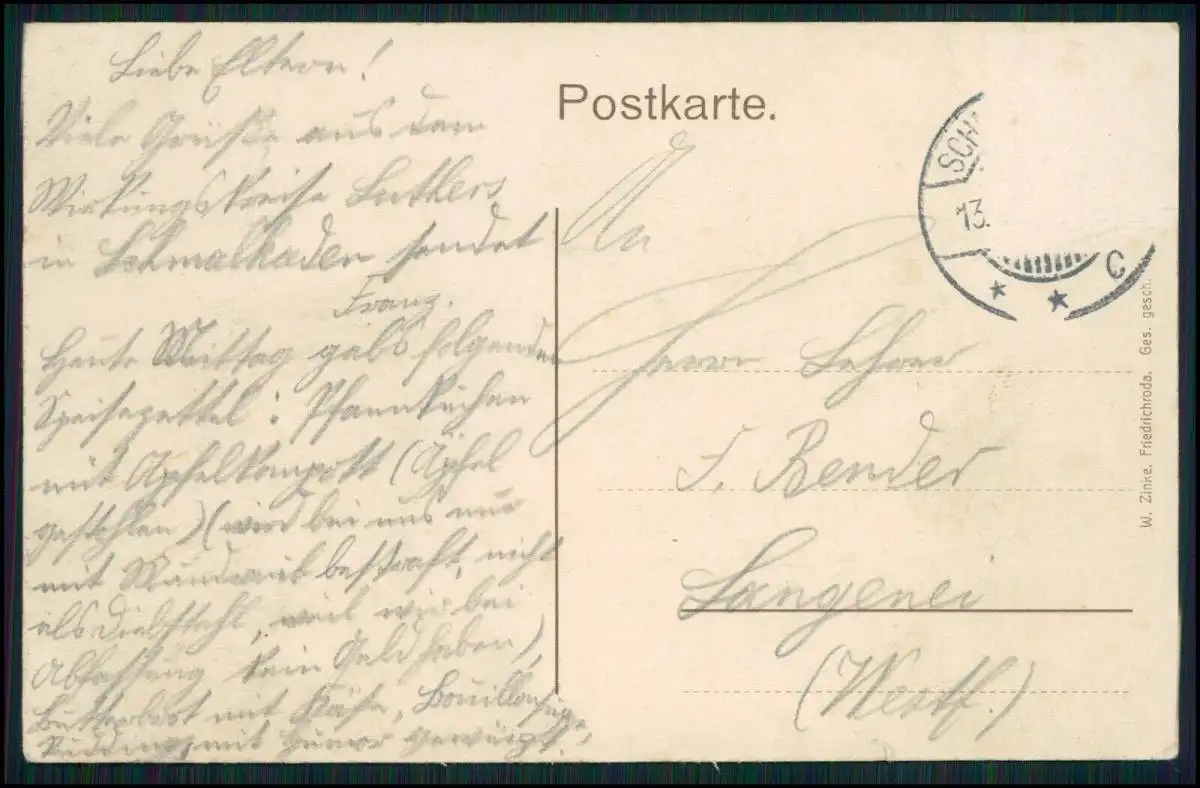 Liebe Eltern!
Viele Grüße aus dem
Wirkungskreise Luthers
in Schmalkaden sendet
Franz.
Heute Mittag gabs folgenden
Speisezettel: Pfannkuchen
mit Apfelkompott (Äpfel
gestohlen) (wird bei uns nur
mit Mundraub bestraft, nicht
als Diebstahl, weil wir bei
Abfassung kein Geld haben),
Butterbrot mit Käse, Bouillonsuppe,
mit Humor gewürzt.
Postkarte.
An
Herrn Lehrer
F. Bender
Langenei
(Westf.)
SCH
13.
C
W. Zinke, Friedrichroda. Ges. gesch.